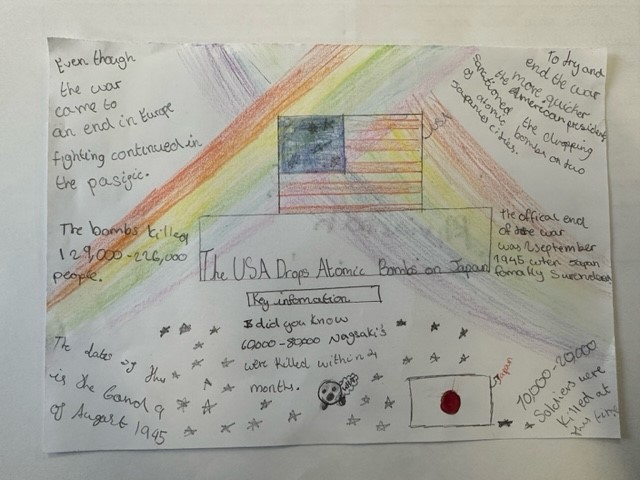 Even though
the war
came to
an end in Europe
fighting continued in
the pasific.
To try and
end the war
more quicker
the American president
sanctioned the dropping
of atomic bombs on two
Japanies cities.
USA
The bombs killed
129,000-226,000
people.
The USA Drops Atomic Bombs on Japan
The offical end
of the war
was 2 September
1945 when Japan
fomally Surendered
Key infomation
did you know
60,000-80,000 Nagsaki's
were killed within 2
months.
The dates of this
is the 6 and 9
of August 1945
Japan
10,000-20,000
Soldiers were
killed at
this time